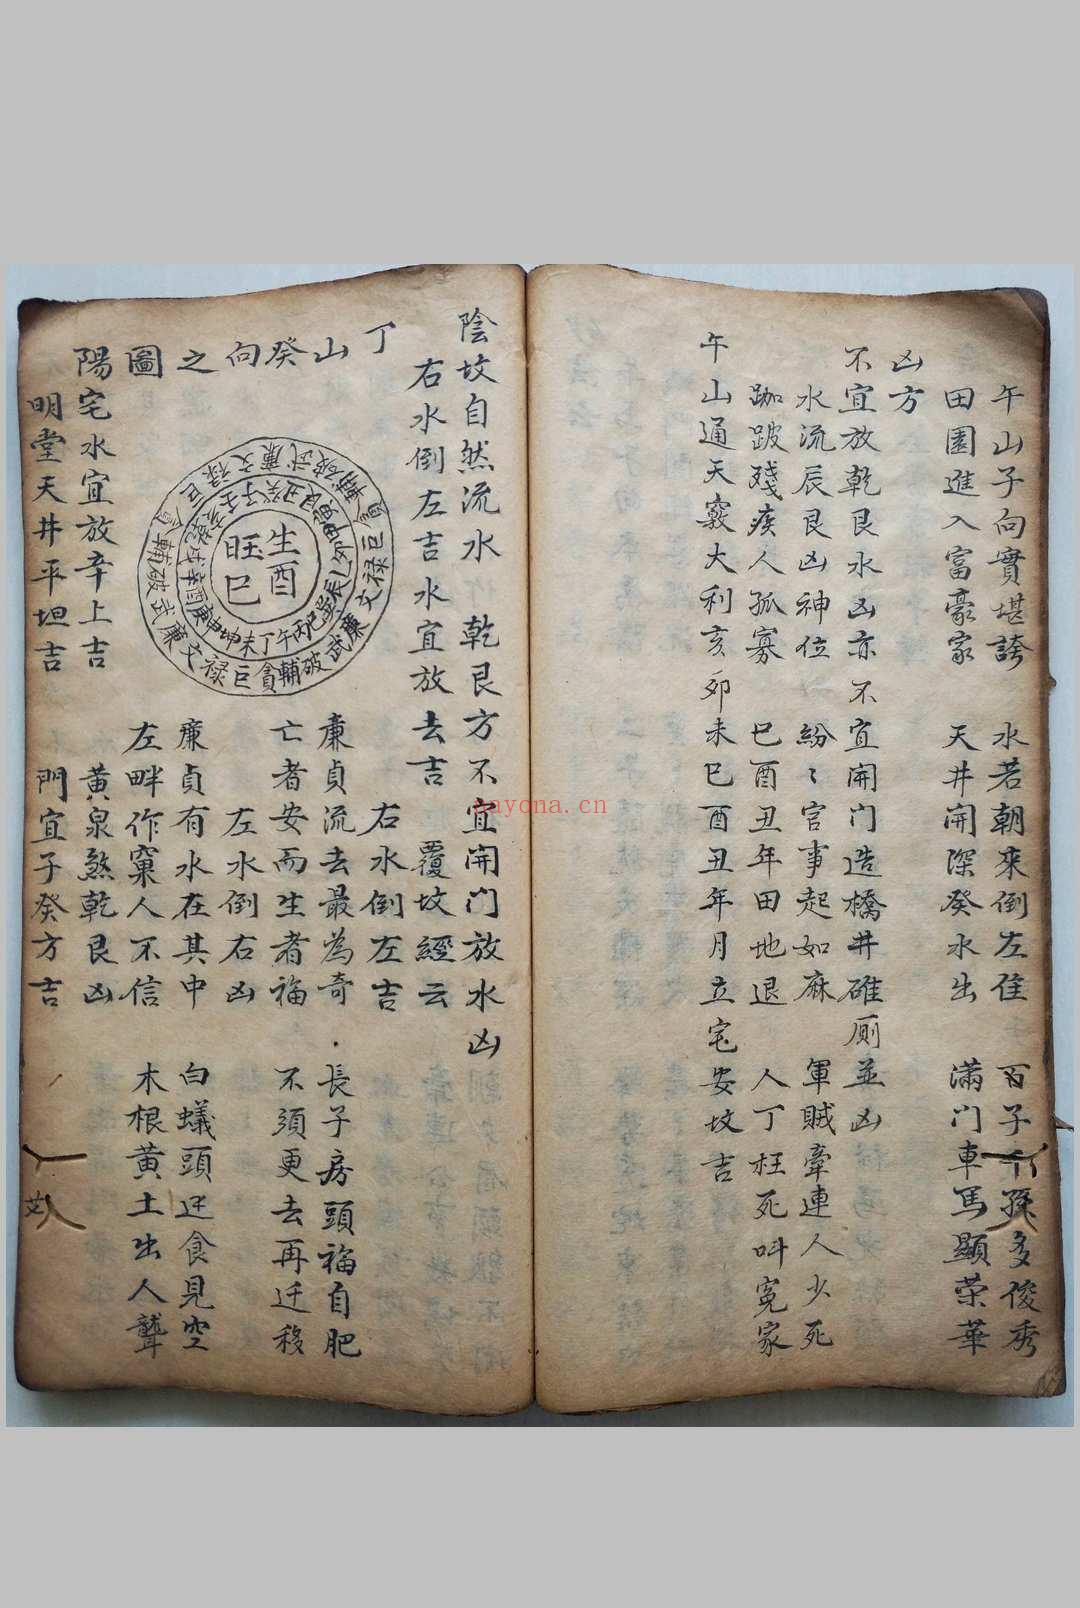 午山子向實堪誇 水若朝來倒左佳 百子千孫多俊秀
田園進入富豪家 天井開深癸水出 滿门車馬顯荣華
凶方
不宜放乾艮水凶亦不宜開门造橋井碓厠並凶
水流辰艮凶神位 紛〻官事起如麻 軍賊牽連人少死
跏跛殘疾人孤寡 巳酉丑年田地退 人丁枉死叫冤家
午山通天竅大利亥卯未巳酉丑年月立宅安坟吉
陰坟自然流水 乾艮方不宜開门放水凶
右水倒左吉水宜放去吉 覆坟經云
丁山癸向之圖
右水倒左吉
廉貞流去最為奇 長子房頭福自肥
亡者安而生者福 不須更去再迁移
左水倒右凶
廉貞有水在其中 白蟻頭边食見空
左畔作窠人不信 木根黄土出人聾
陽宅水宜放辛上吉 黄泉煞乾艮凶
明堂天井平坦吉 門宜子癸方吉
生酉
旺巳
nayona.cn